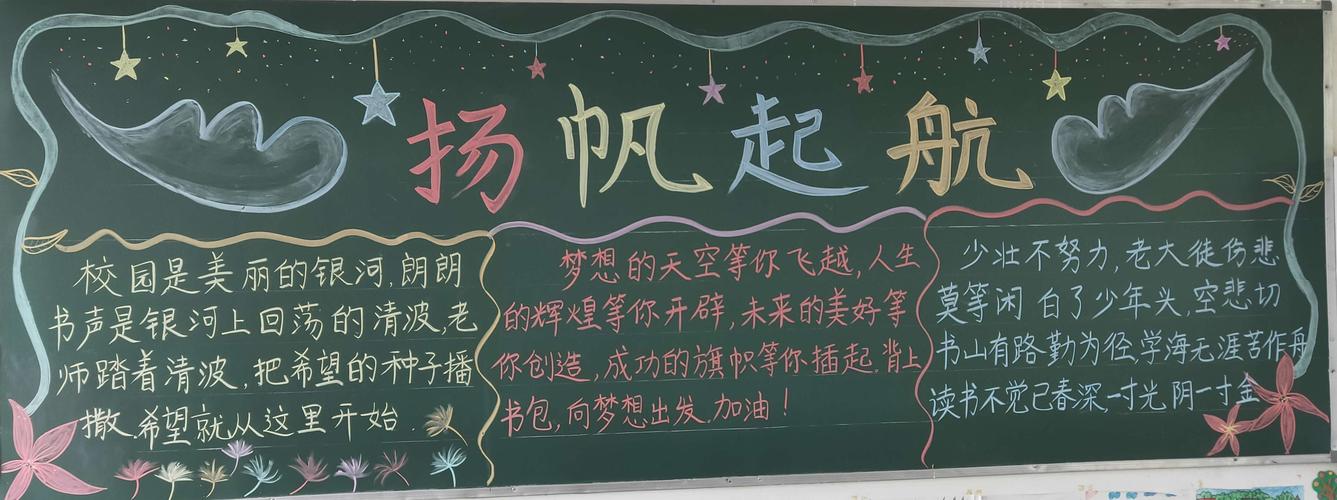 扬帆起航
校园是美丽的银河,朗朗
书声是银河上回荡的清波,老
师踏着清波,把希望的种子播
撒.希望就从这里开始.
梦想的天空等你飞越,人生
的辉煌等你开辟,未来的美好等
你创造,成功的旗帜等你插起.背上
书包,向梦想出发.加油!
少壮不努力,老大徒伤悲
莫等闲 白了少年头,空悲切
书山有路勤为径,学海无涯苦作舟
读书不觉已春深,一寸光阴一寸金